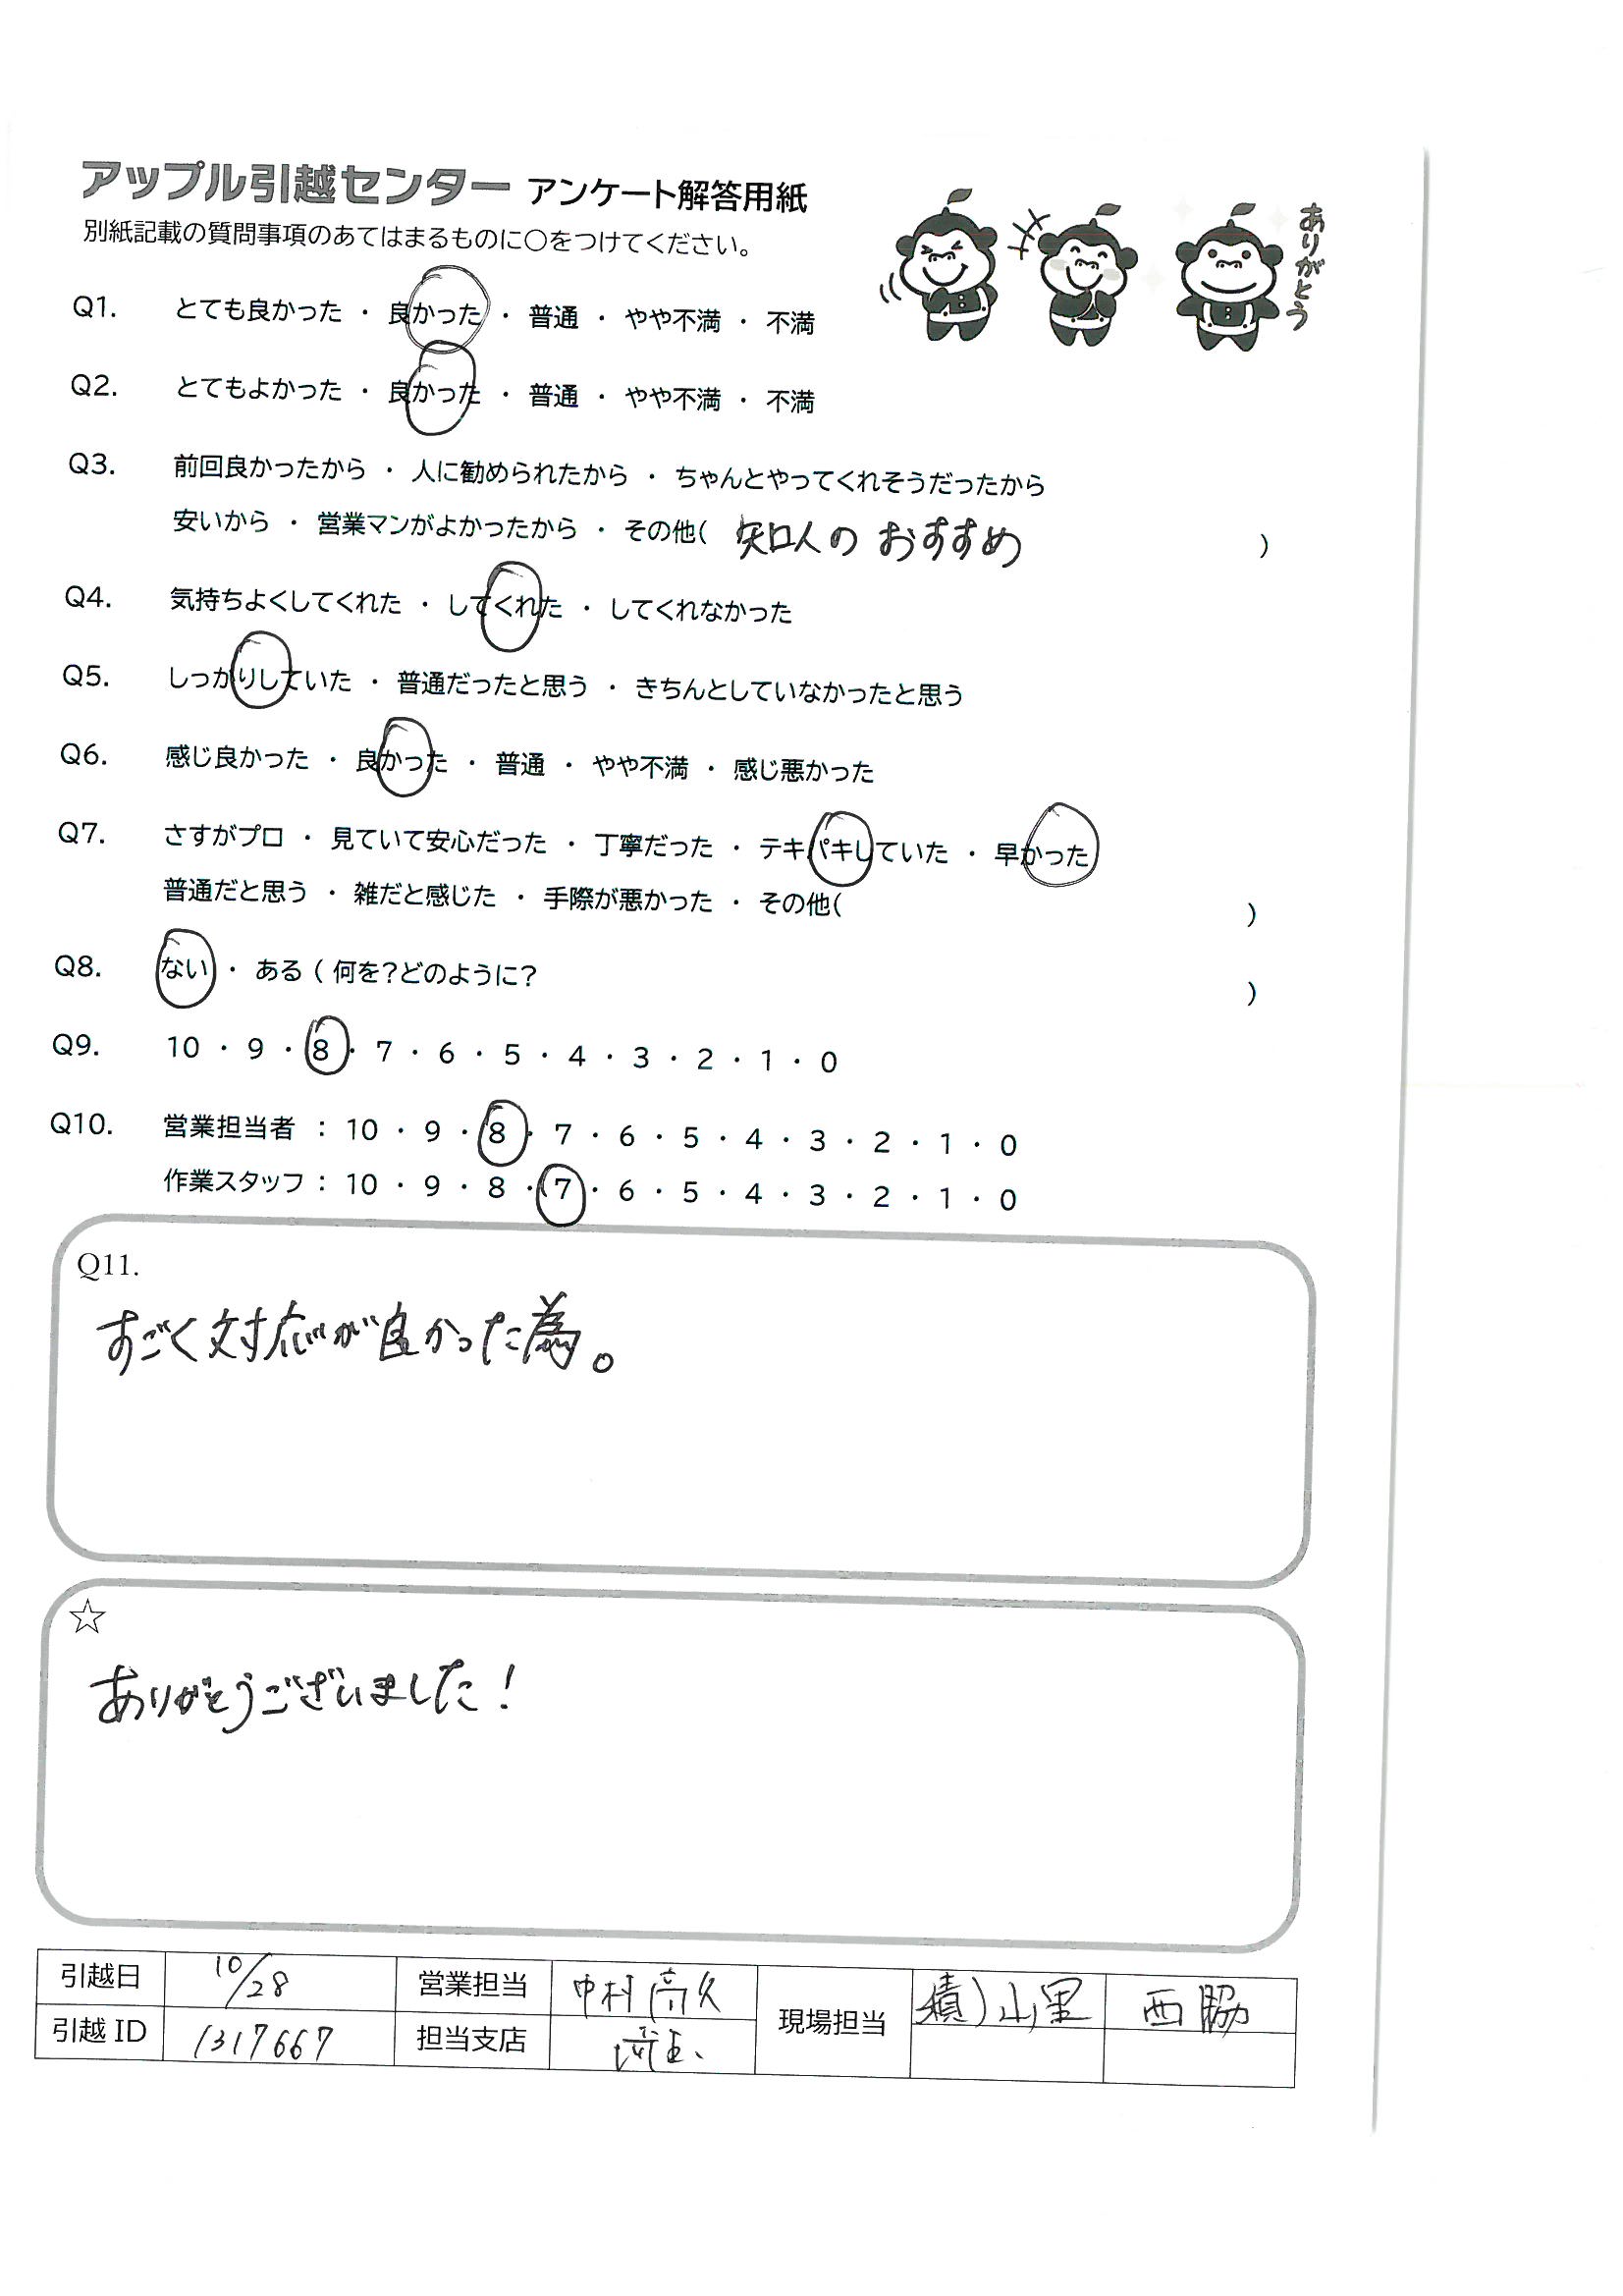 アップル引越センター アンケート解答用紙
別紙記載の質問事項のあてはまるものに○をつけてください。
ありがとう
Q1. とても良かった ・ 良かった ・ 普通 ・ やや不満 ・ 不満
Q2. とてもよかった ・ 良かった ・ 普通 ・ やや不満 ・ 不満
Q3. 前回良かったから ・ 人に勧められたから ・ ちゃんとやってくれそうだったから
安いから ・ 営業マンがよかったから ・ その他( 知人の おすすめ )
Q4. 気持ちよくしてくれた ・ してくれた ・ してくれなかった
Q5. しっかりしていた ・ 普通だったと思う ・ きちんとしていなかったと思う
Q6. 感じ良かった ・ 良かった ・ 普通 ・ やや不満 ・ 感じ悪かった
Q7. さすがプロ ・ 見ていて安心だった ・ 丁寧だった ・ テキパキしていた ・ 早かった
普通だと思う ・ 雑だと感じた ・ 手際が悪かった ・ その他( )
Q8. ない ・ ある ( 何を?どのように? )
Q9. 10 ・ 9 ・ 8 ・ 7 ・ 6 ・ 5 ・ 4 ・ 3 ・ 2 ・ 1 ・ 0
Q10. 営業担当者 : 10 ・ 9 ・ 8 ・ 7 ・ 6 ・ 5 ・ 4 ・ 3 ・ 2 ・ 1 ・ 0
作業スタッフ : 10 ・ 9 ・ 8 ・ 7 ・ 6 ・ 5 ・ 4 ・ 3 ・ 2 ・ 1 ・ 0
Q11.
すごく対応が良かった為。
☆
ありがとうございました!
引越日 10/28 営業担当 中村 現場担当 積)山里 西脇
引越 ID 1317667 担当支店 埼玉